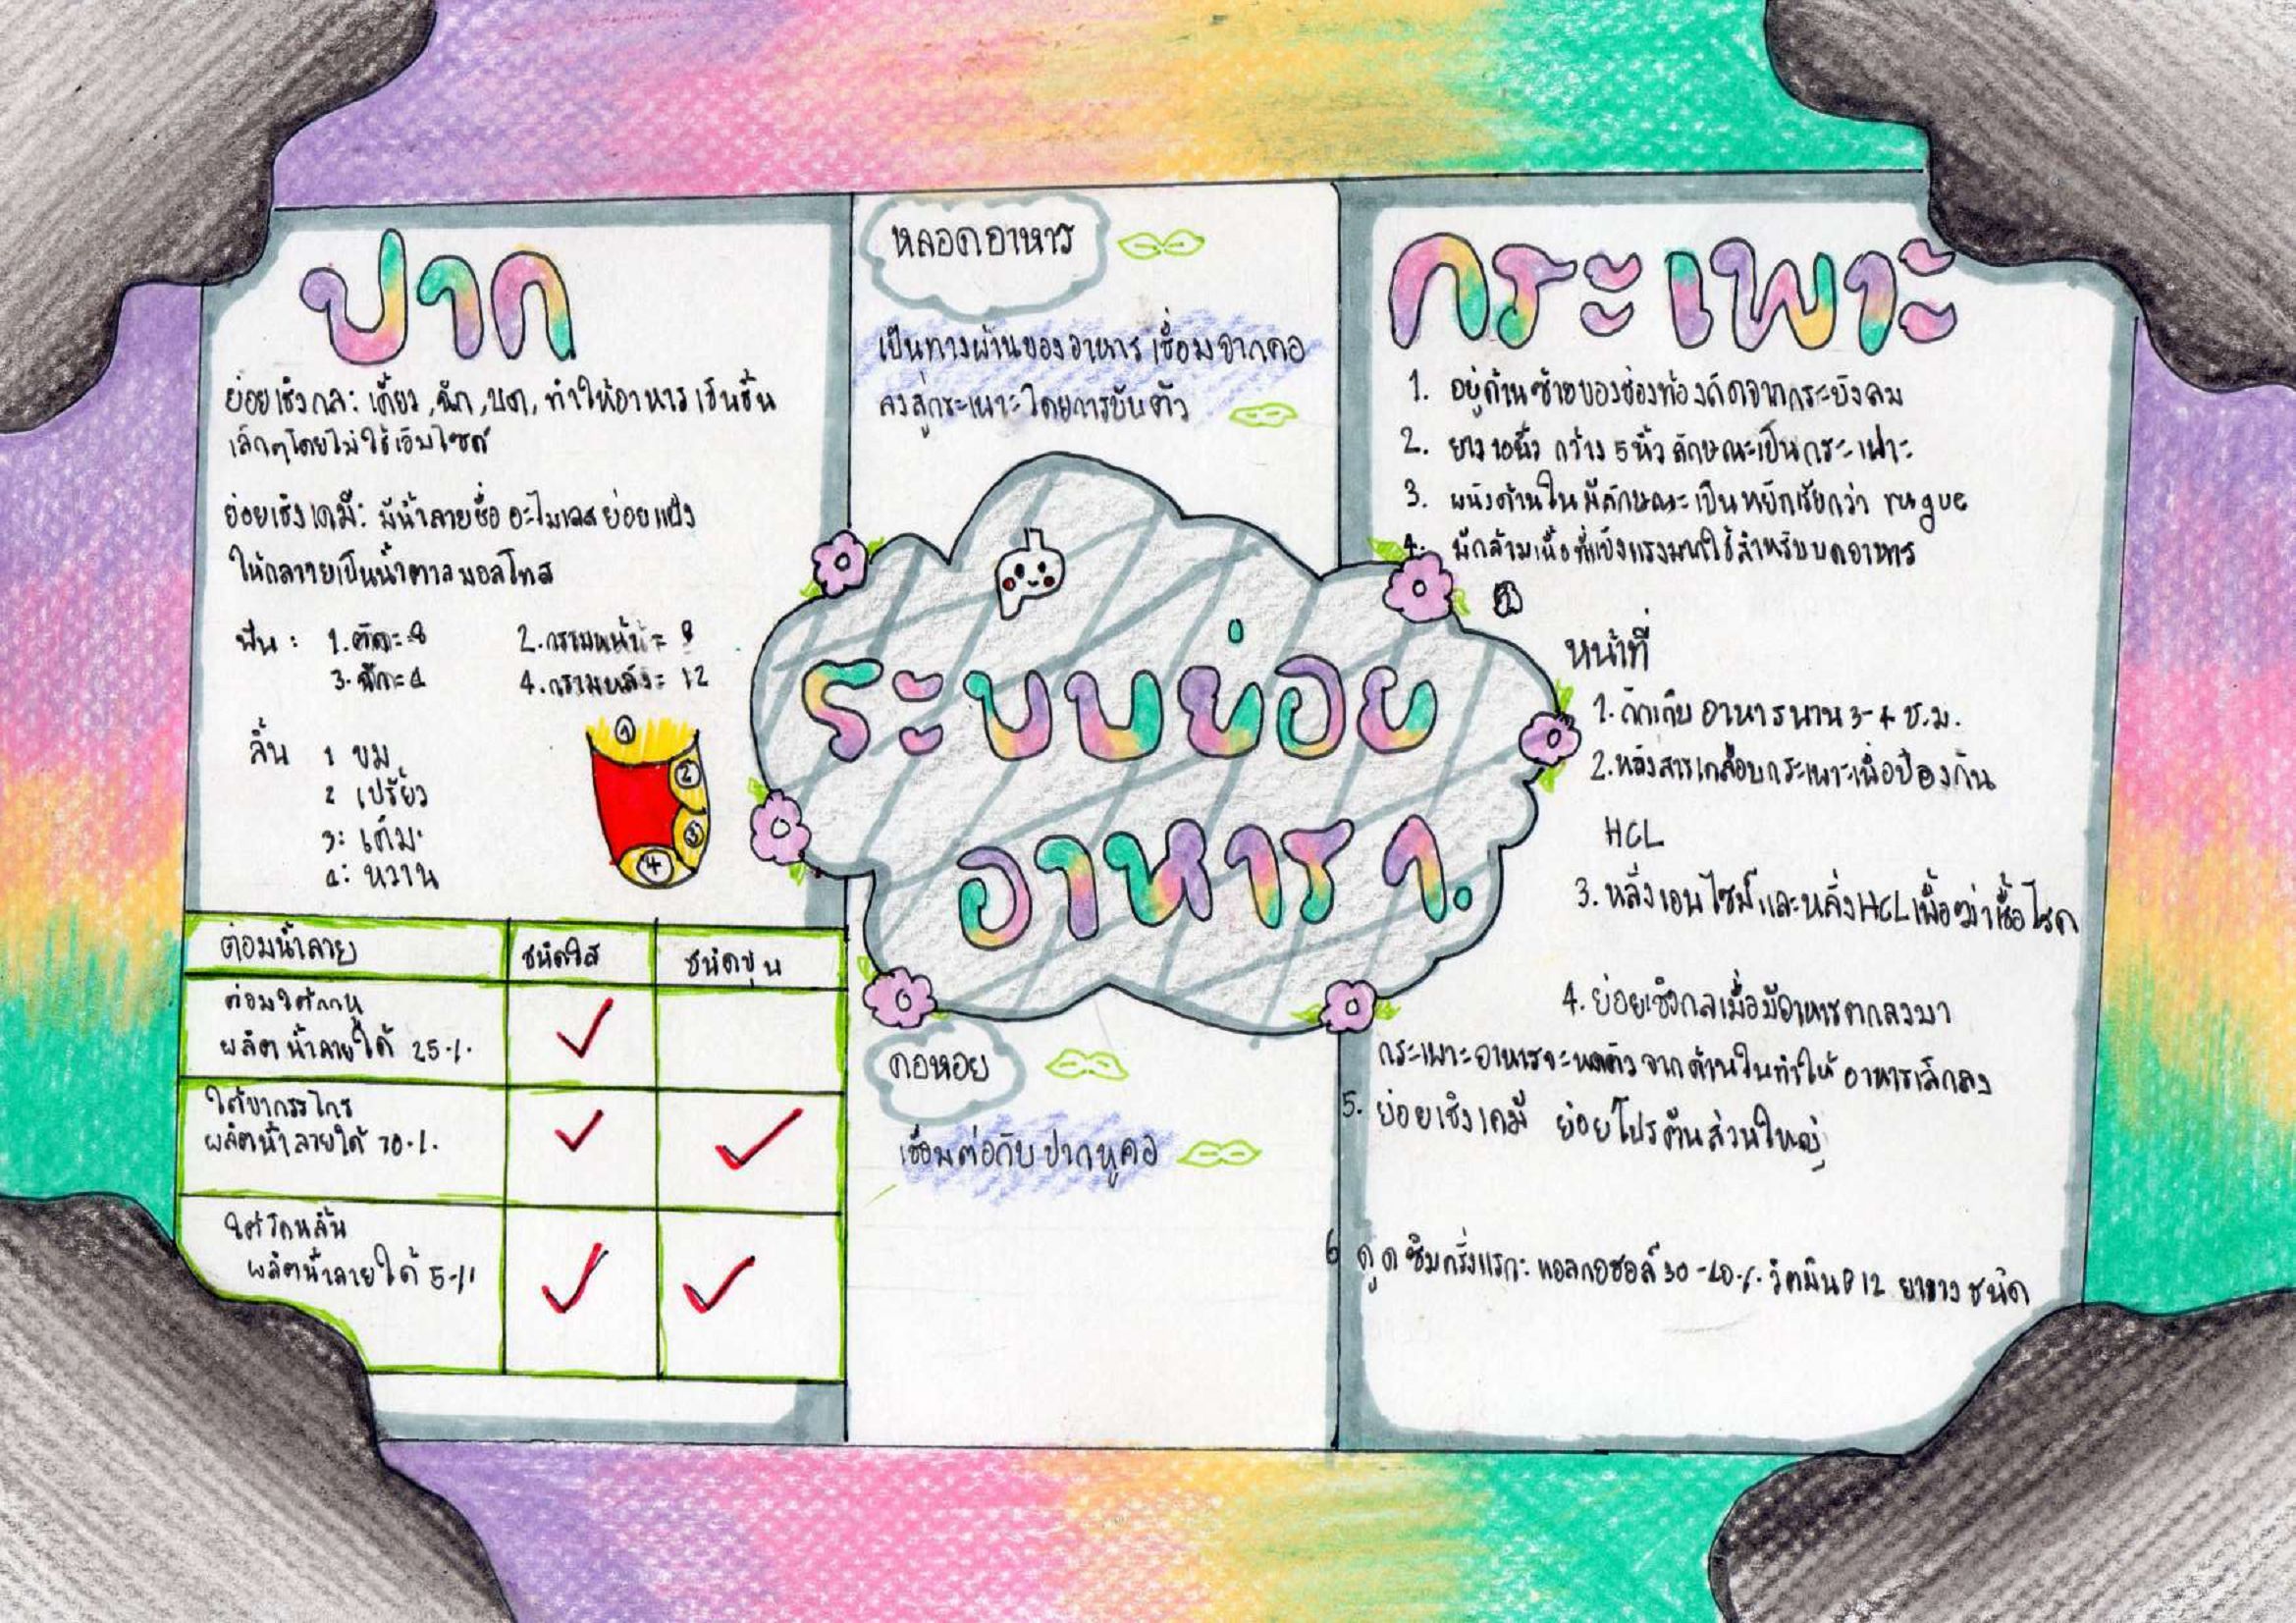 ปาก
ย่อยเชิงกล: เคี้ยว, ฉีก, บด, ทำให้อาหารเป็นชิ้น
เล็กๆโดยไม่ใช้เอ็มไซด์
ย่อยเชิงเคมี: มีน้ำลายชื่อ อะไมเลส ย่อยแป้ง
ให้กลายเป็นน้ำตาลมอลโทส
ฟัน : 1.ตัด=8 2.กรามหน้า= 8
3.ฉีก=4 4.กรามหลัง= 12
ลิ้น 1 ขม
2 เปรี้ยว
3: เค็ม
4: หวาน
1
2
3
4
ต่อมน้ำลาย ชนิดใส ชนิดขุ่น
ต่อมใต้กกหู
ผลิตน้ำลายได้ 25%
ใต้ขากรรไกร
ผลิตน้ำลายได้ 70%
ใต้ลิ้น
ผลิตน้ำลายได้ 5%
หลอดอาหาร
เป็นทางผ่านของอาหารเชื่อมจากคอ
ลงสู่กระเพาะโดยการบีบตัว
ระบบย่อย
อาหาร 1.
คอหอย
เชื่อมต่อกับปากหูคอ
กระเพาะ
1. อยู่ด้านซ้ายของช่องท้องถัดจากกระบังลม
2. ยาว 10นิ้ว กว้าง 5นิ้ว ลักษณะเป็นกระเพาะ
3. ผนังด้านในมีลักษณะเป็นหยักเรียกว่า rugue
4. มีกล้ามเนื้อที่แข็งแรงมากใช้สำหรับบดอาหาร
หน้าที่
1. กักเก็บอาหารนาน 3-4 ช.ม.
2. หลั่งสารเคลือบกระเพาะเพื่อป้องกัน
HCL
3. หลั่งเอนไซม์และหลั่งHCLเพื่อฆ่าเชื้อโรค
4. ย่อยเชิงกลเมื่อมีอาหารตกลงมา
กระเพาะอาหารจะหดตัวจากด้านในทำให้อาหารเล็กลง
5. ย่อยเชิงเคมี ย่อยโปรตีนส่วนใหญ่
6 ดูดซึมครั้งแรก: แอลกอฮอล์ 30-40% วิตมิน B12 ยาบางชนิด